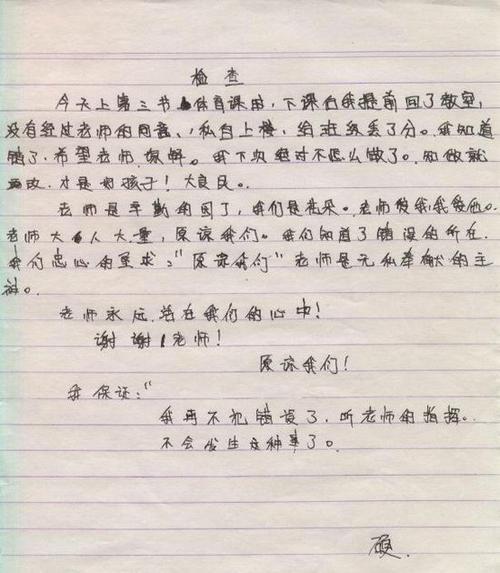 检查
今天上第三节体育课时,下课后我提前回了教室,
没有经过老师的同意、私自上楼,给班级丢了分。我知道
错了,希望老师原解。我下次绝对不怎么做了。知做就
改,才是好孩子!大良民。
老师是辛勤的园丁,我们是花朵。老师爱我,我爱他。
老师大人大量,原谅我们。我们知道了错误的所在。
我们忠心的望求:“原谅我们”老师是无私奉献的主
神。
老师永远活在我们的心中!
谢谢老师!
原谅我们!
我保证:“
我再不犯错误了,听老师的指挥。
不会发生这种事了。